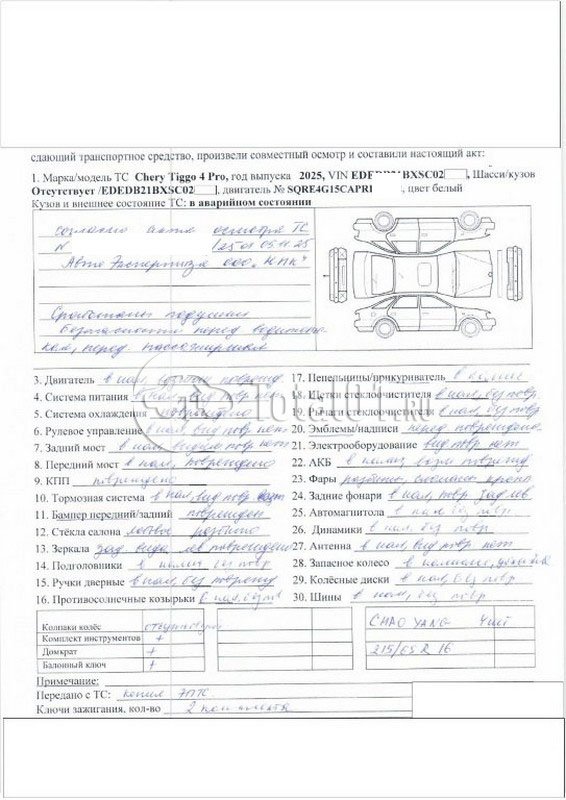 сдающий транспортное средство, произвели совместный осмотр и составили настоящий акт:
1. Марка/модель ТС Chery Tiggo 4 Pro, год выпуска 2025, VIN BXSC02, Шасси/кузов
Отсутствует /EDEDB21BXSC02, двигатель № SQRE4G15CAPRI, цвет белый
Кузов и внешнее состояние ТС: в аварийном состоянии
согласно акта осмотра ТС
N 05.11.25
Авто Экспертиза ООО „НПК“
Сработаны подушки
безопасности перед водителем
перед. пассажирская
3. Двигатель в нал,
4. Система питания в нал, вид повр нет
5. Система охлаждения повреждено
6. Рулевое управление в нал вид повр нет
7. Задний мост в нал видим повр нет
8. Передний мост в нал, повреждено
9. КПП повреждено
10. Тормозная система в нал, вид повр нет
11. Бампер передний/задний поврежден
12. Стёкла салона лобовое разбито
13. Зеркала зад. вида лв повреждено
14. Подголовники в налич без повр
15. Ручки дверные в нал, без поврежд
16. Противосолнечные козырьки в нал, без повр
17. Пепельницы/прикуриватель в налич
18. Щетки стеклоочистителя в нал, без повр
19. Рычаги стеклоочистителя в нал, без повр
20. Эмблемы/надписи перед повреждено
21. Электрооборудование вид повр нет
22. АКБ в налич возм поврежд
23. Фары разбиты,
24. Задние фонари в нал, повр зад лв
25. Автомагнитола в нал, без повр.
26. Динамики в нал, без повр.
27. Антенна в нал, вид повр нет
28. Запасное колесо в наличии,
29. Колёсные диски в нал, без повр
30. Шины в нал, без повр
Колпаки колёс отсутствуют
Комплект инструментов +
Домкрат +
Балонный ключ +
CHAO YANG 4 шт
215/65 R 16
Примечание:
Передано с ТС: копия ЭПТС
Ключи зажигания, кол-во 2 комплекта
Total01.ru